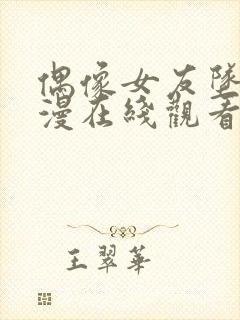 偶像女友墜
漫在綫觀看
王翠華